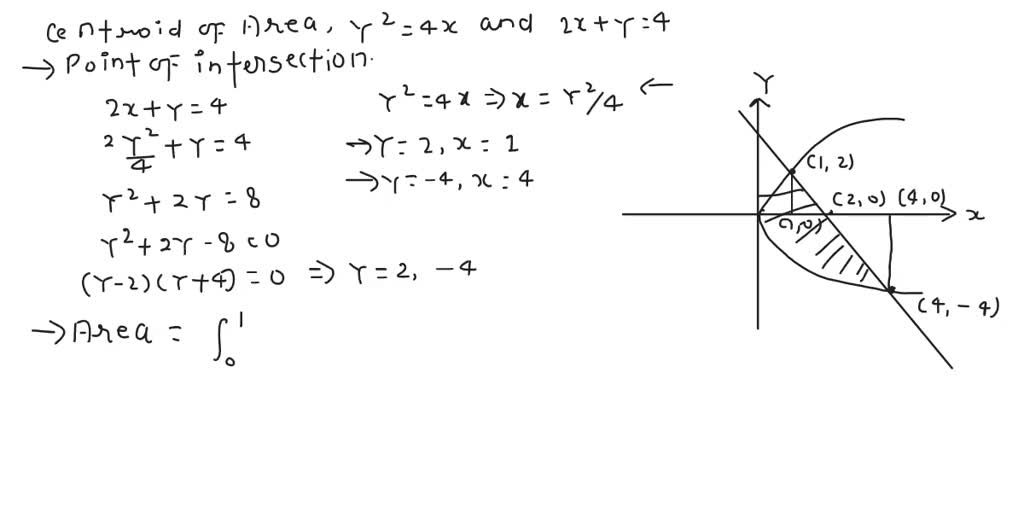 Centroid of Area, Y² = 4x and 2x + Y = 4
→ Point of intersection.
2x + Y = 4
2 Y²/4 + Y = 4
Y² + 2Y = 8
Y² + 2Y - 8 = 0
(Y-2)(Y+4) = 0 ⇒ Y = 2, -4
Y² = 4x ⇒ x = Y²/4 ←
→ Y = 2, x = 1
→ Y = -4, x = 4
→ Area = ∫₀¹
Y
(1, 2)
(2, 0) (4, 0)
x
(4, -4)